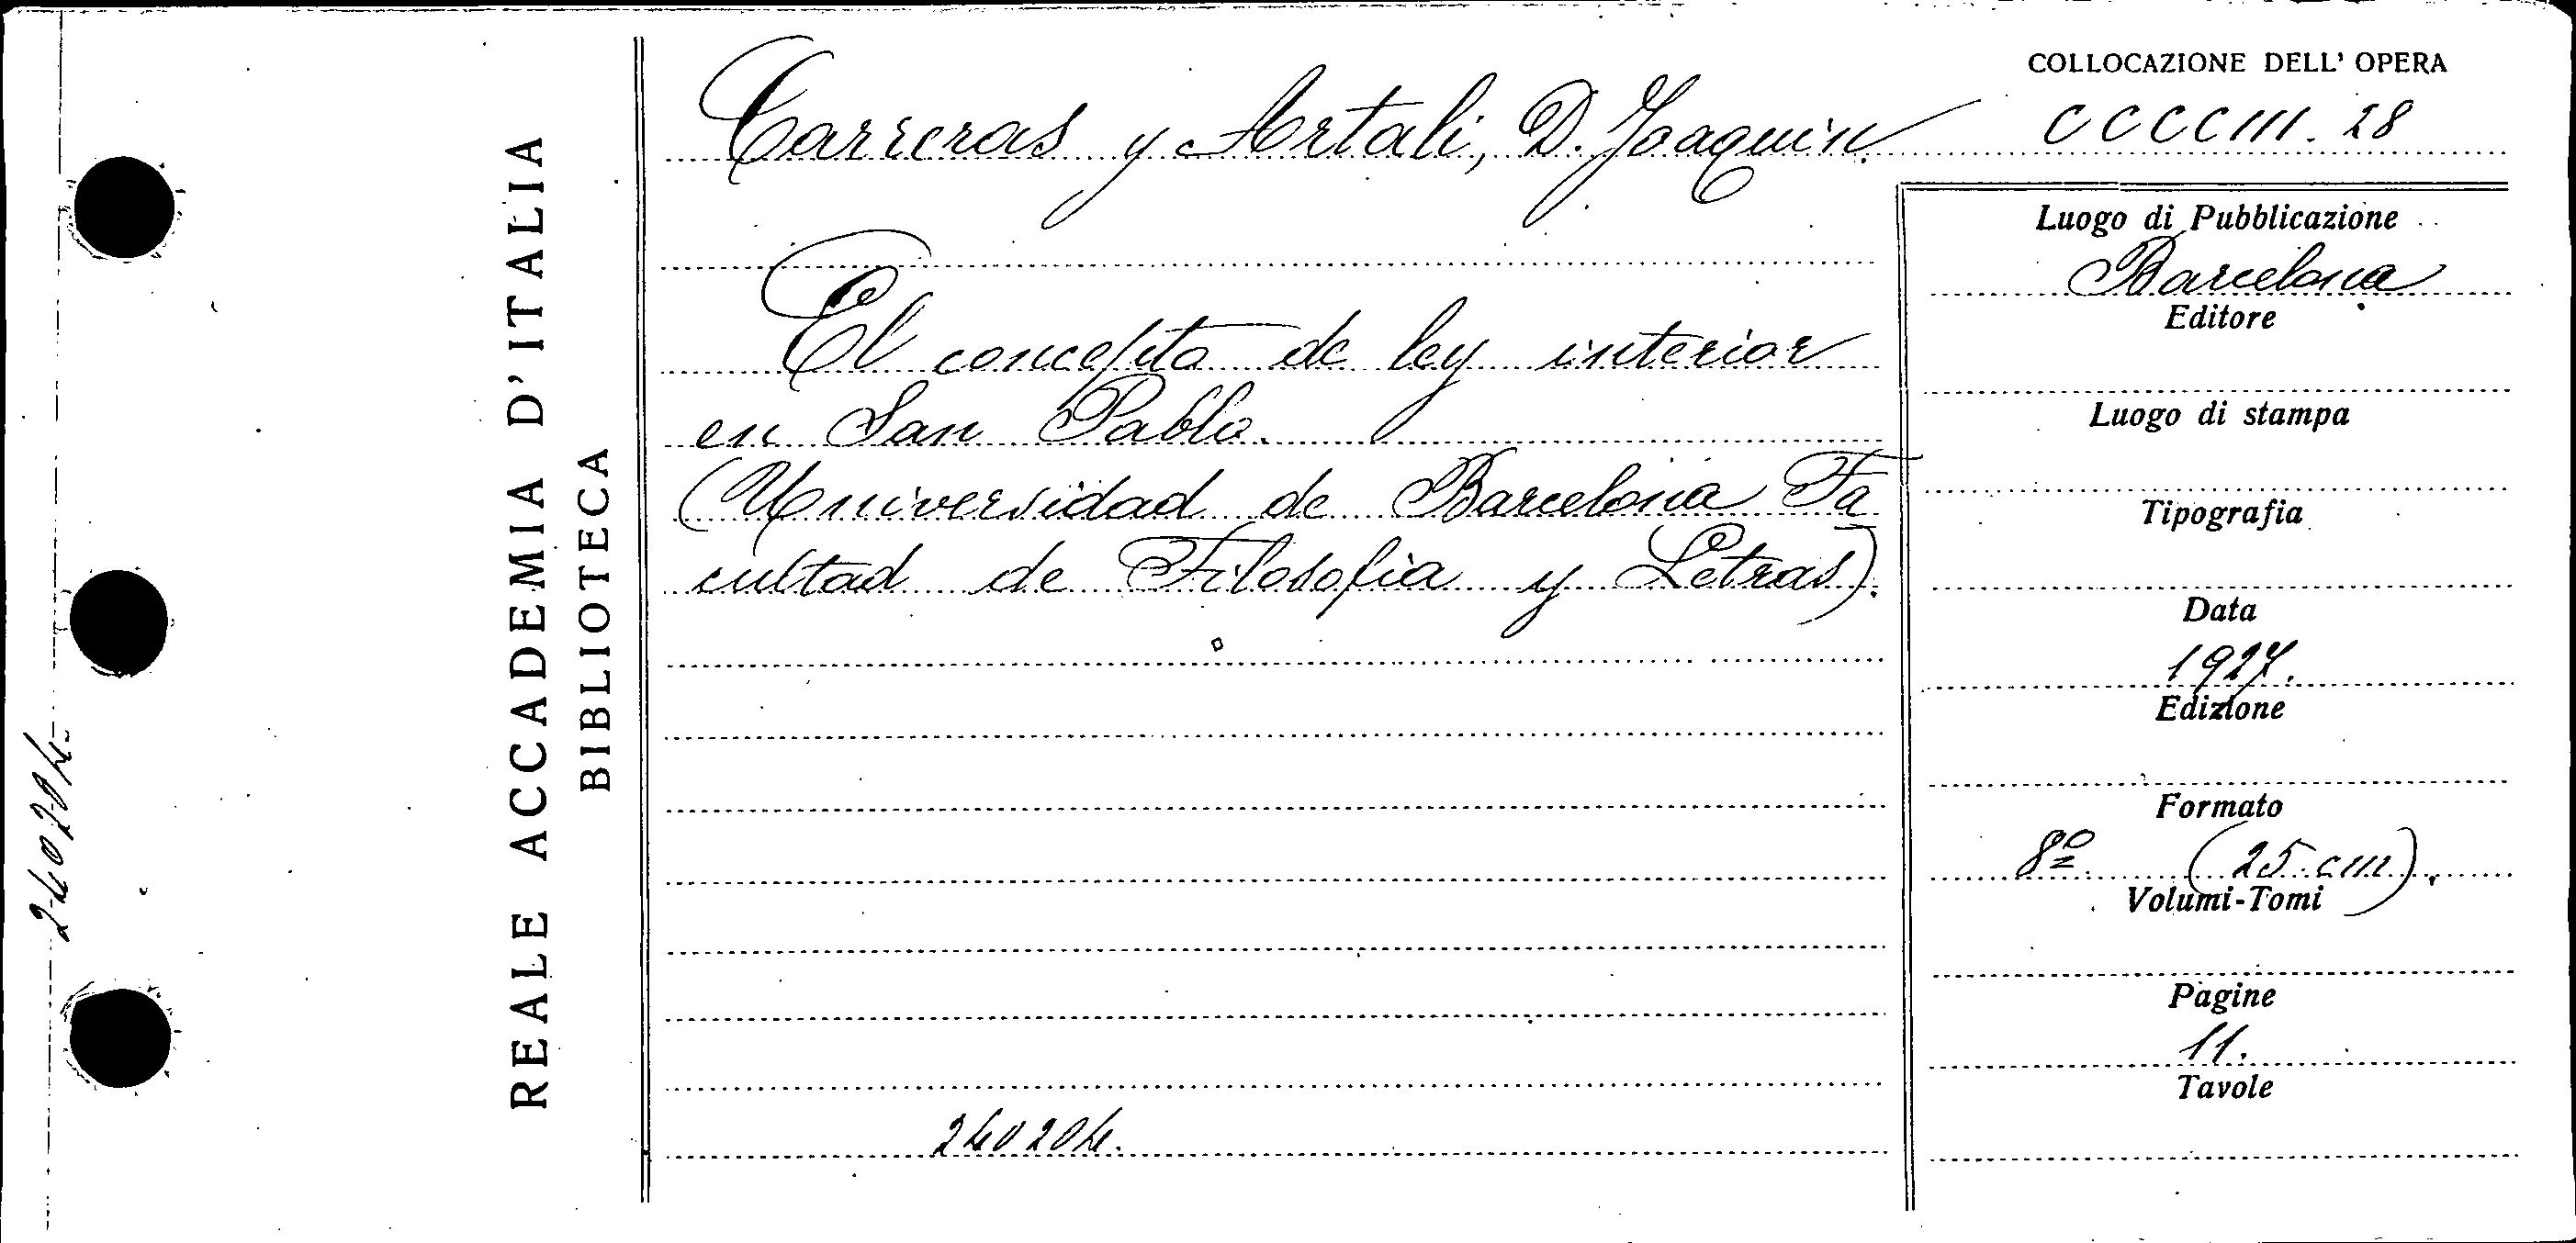 REALE ACCADEMIA D'ITALIA
BIBLIOTECA
240204
Carreras y Artali, D. Joaquin.
El concepto de ley interior
en San Pablo.
(Universidad de Barcelona Fa
cultad de Filosofia y Letras).
240204.
COLLOCAZIONE DELL' OPERA
CCCCIII. 28
Luogo di Pubblicazione
Barcelona
Editore
Luogo di stampa
Tipografia
Data
1927.
Edizione
Formato
8º (25 cm).
Volumi-Tomi
Pagine
11.
Tavole